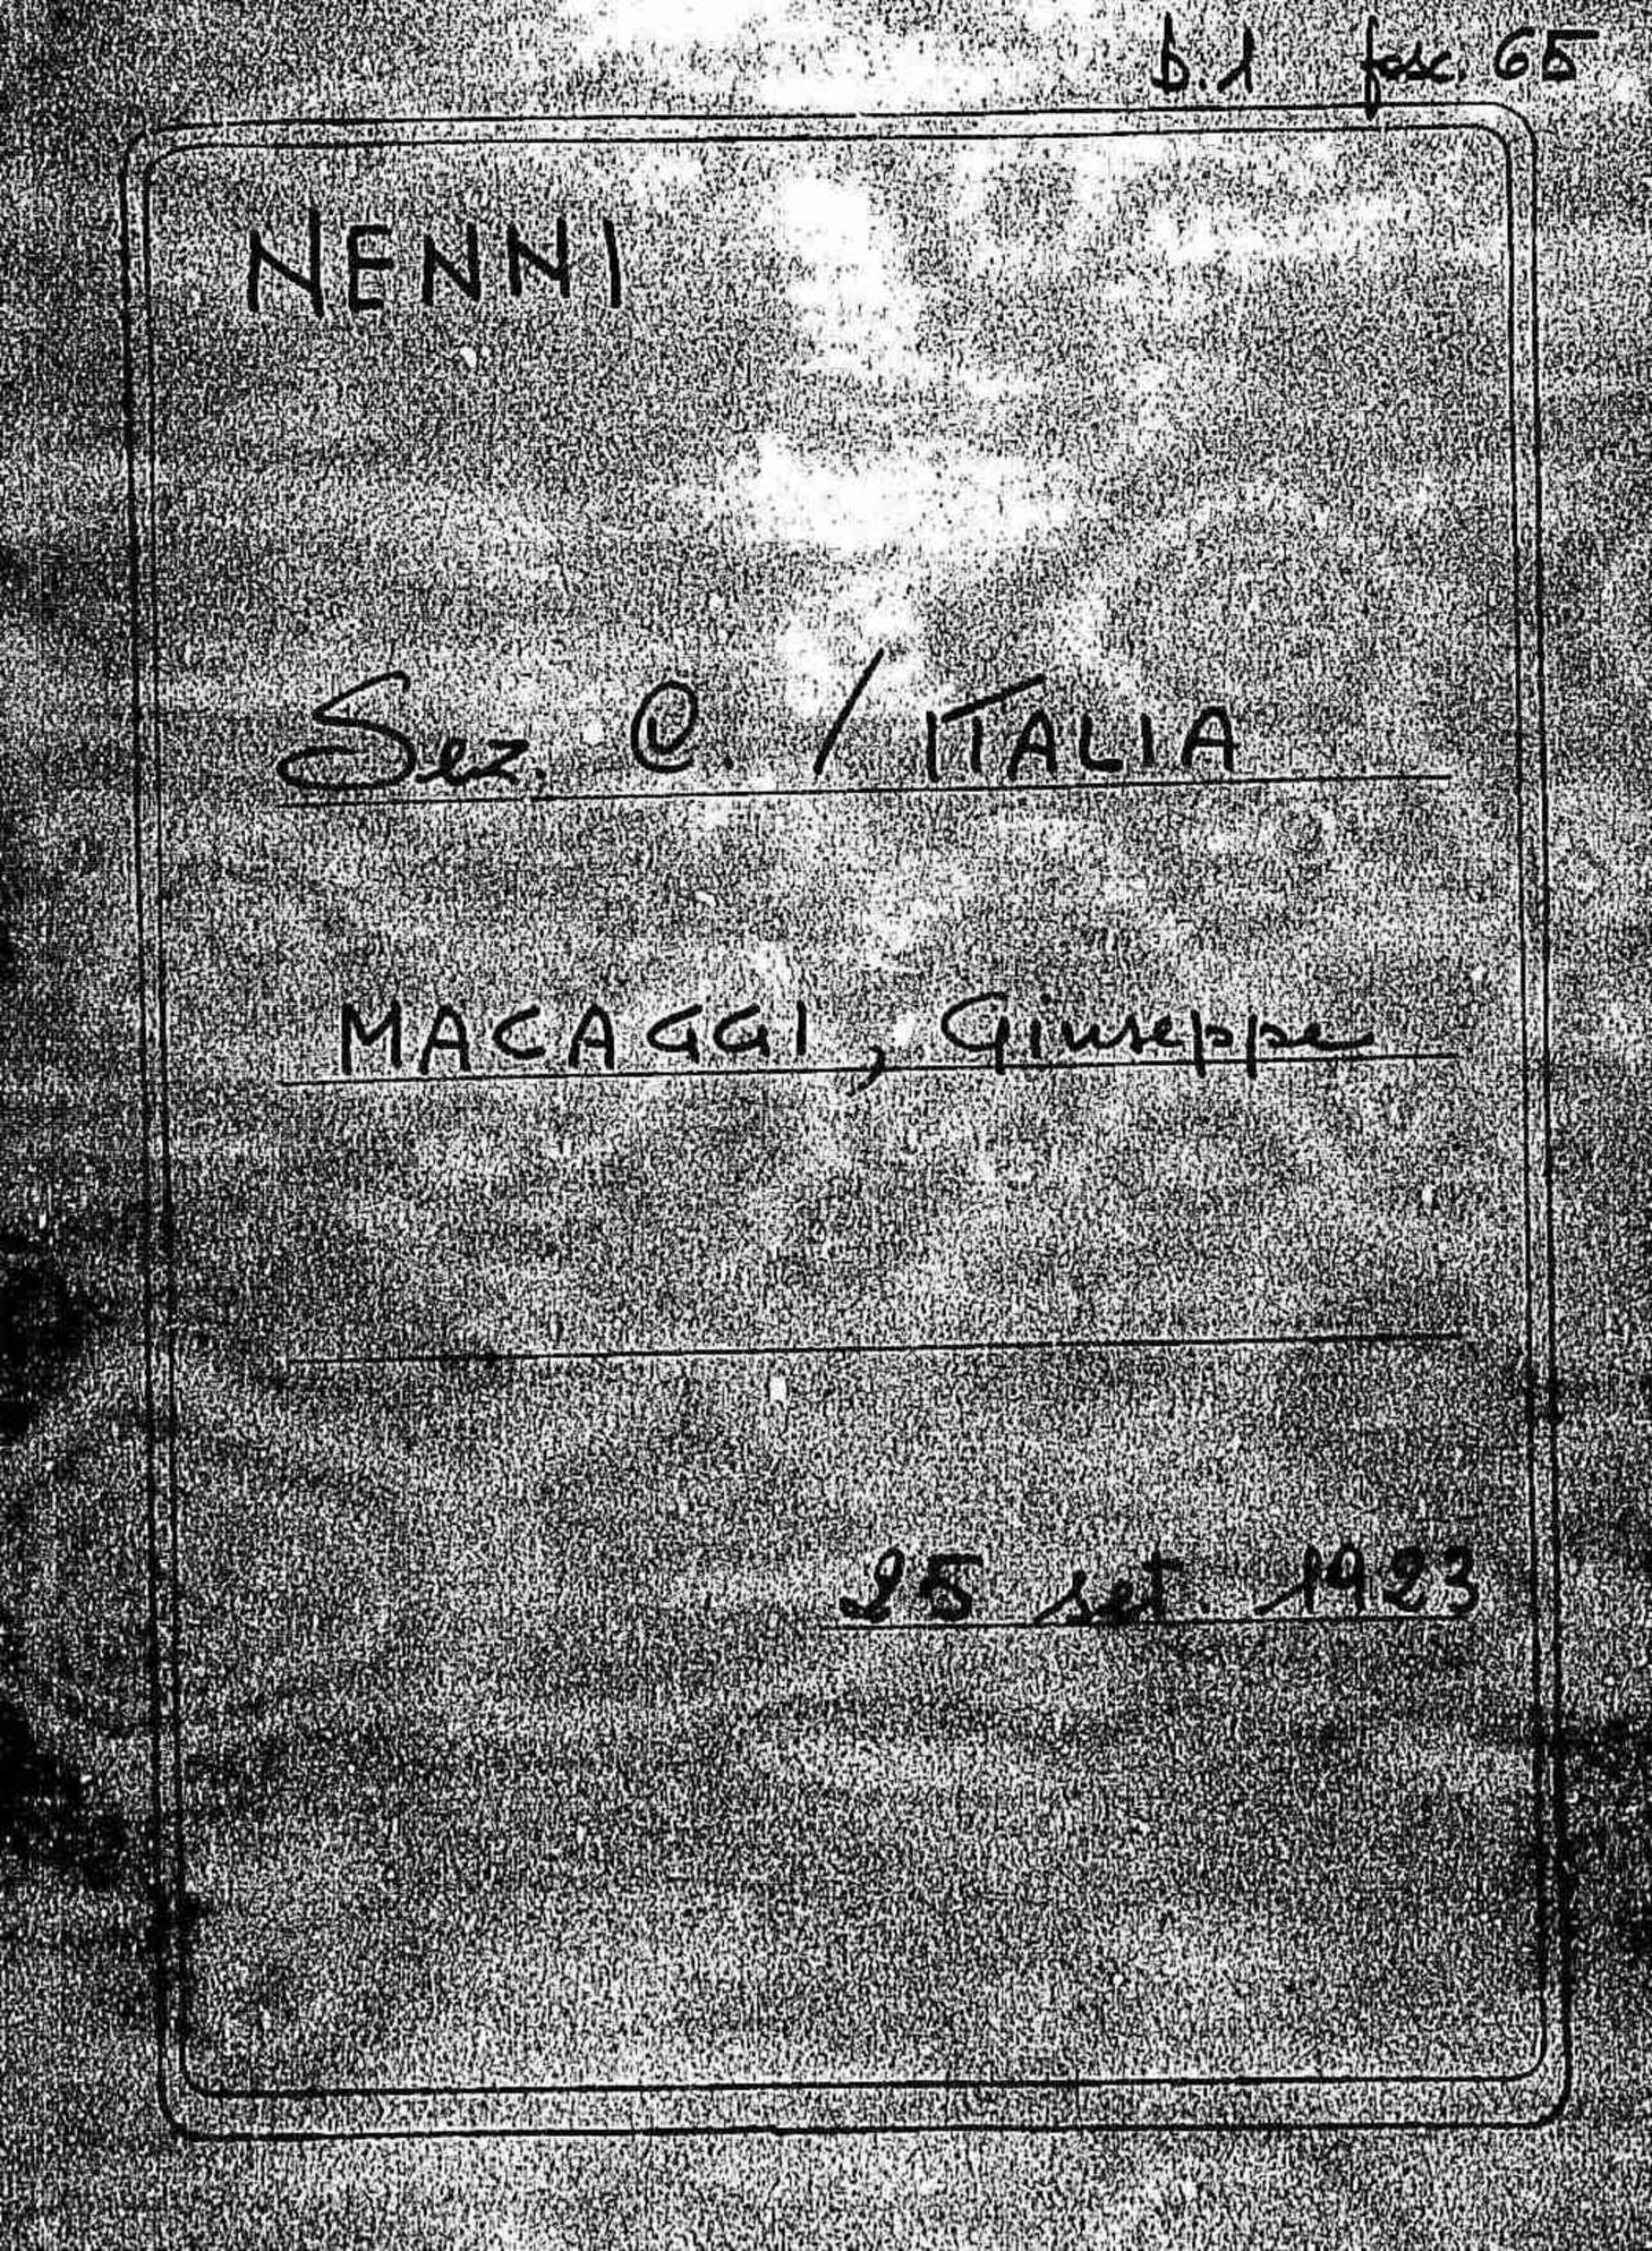 b.1 fasc. 65
NENNI
Sez. C. / ITALIA
MACAGGI, Giuseppe
25 set. 1923